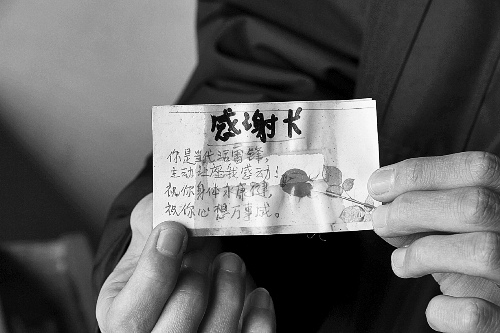 感谢卡
你是当代活雷锋，
主动让座我感动！
祝你身体永康健
祝你心想万事成。